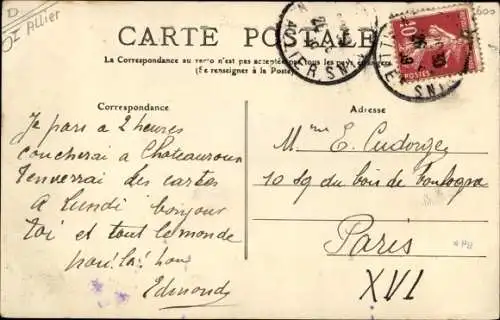 D
Allier
CARTE POSTALE
La Correspondance au recto n'est pas acceptée par tous les pays étrangers
(Se renseigner à la Poste)
Correspondance
Adresse
Je pars a 2 heures
coucherai a Chateauroux
J'enverrai des cartes
A Lundi bonjour
toi et tout le monde
Edmond
Mme E.
10 Sq du bois de Boulogne
Paris
XVI
10
POSTES